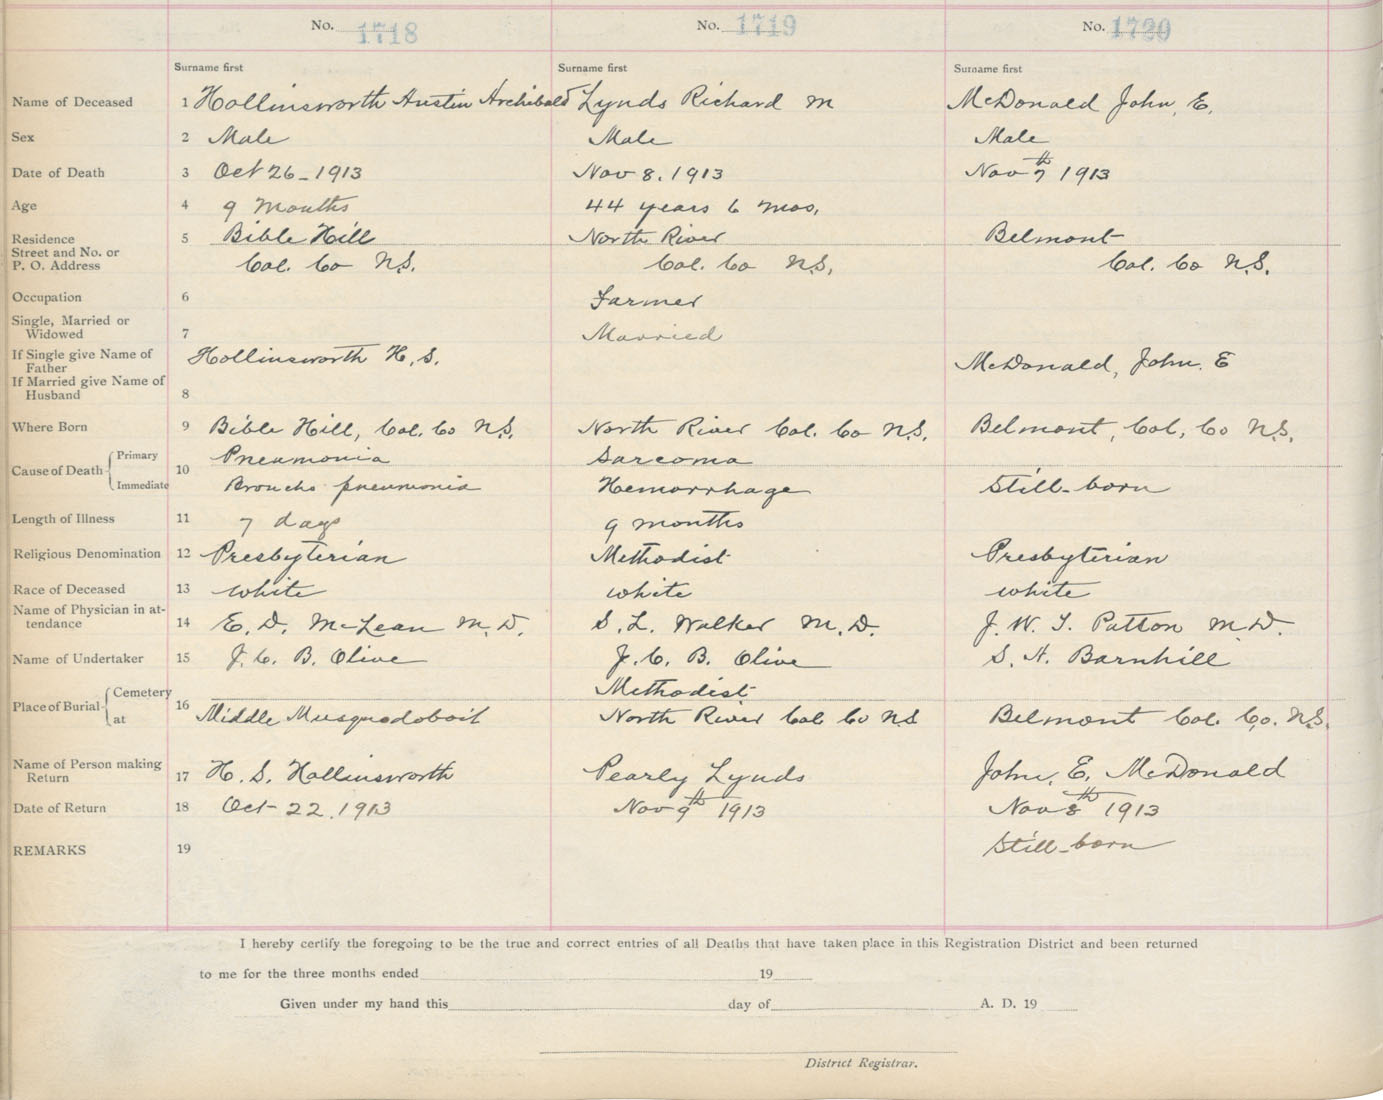 No. 1718 No. 1719 No. 1720
Surname first Surname first Surname first
Name of Deceased 1 Hollinsworth Austin Archibald Lynds Richard M McDonald John, E.
Sex 2 Male Male Male
Date of Death 3 Oct 26-1913 Nov 8. 1913 Nov 7th 1913
Age 4 9 Months 44 years 6 mos,
Residence 5 Bible Hill North River Belmont
Street and No. or
P. O. Address Col. Co N.S. Col. Co N.S. Col. Co N.S.
Occupation 6 Farmer
Single, Married or
Widowed 7 Married
If Single give Name of
Father Hollinsworth H. S. McDonald, John. E
If Married give Name of
Husband 8
Where Born 9 Bible Hill, Col. Co N.S. North River Col. Co N.S. Belmont, Col, Co N.S.
Cause of Death Primary Pneumonia Sarcoma
10
Immediate Broncho pneumonia Hemorrhage Still-born
Length of Illness 11 7 days 9 months
Religious Denomination 12 Presbyterian Methodist Presbyterian
Race of Deceased 13 white white white
Name of Physician in at-
tendance 14 E. D. McLean M. D. S. L. Walker M. D. J. W. T. Patton M.D.
Name of Undertaker 15 J. C. B. Olive J. C. B. Olive S. H. Barnhill
Place of Burial Cemetery Methodist
16
at Middle Musquodoboit North River Col. Co N.S Belmont Col. Co. N.S.
Name of Person making
Return 17 H. S. Hollinsworth Pearly Lynds John, E. McDonald
Date of Return 18 Oct 22. 1913 Nov 9th 1913 Nov 8th 1913
REMARKS 19 Still-born
I hereby certify the foregoing to be the true and correct entries of all Deaths that have taken place in this Registration District and been returned
to me for the three months ended 19
Given under my hand this day of A. D. 19
District Registrar.